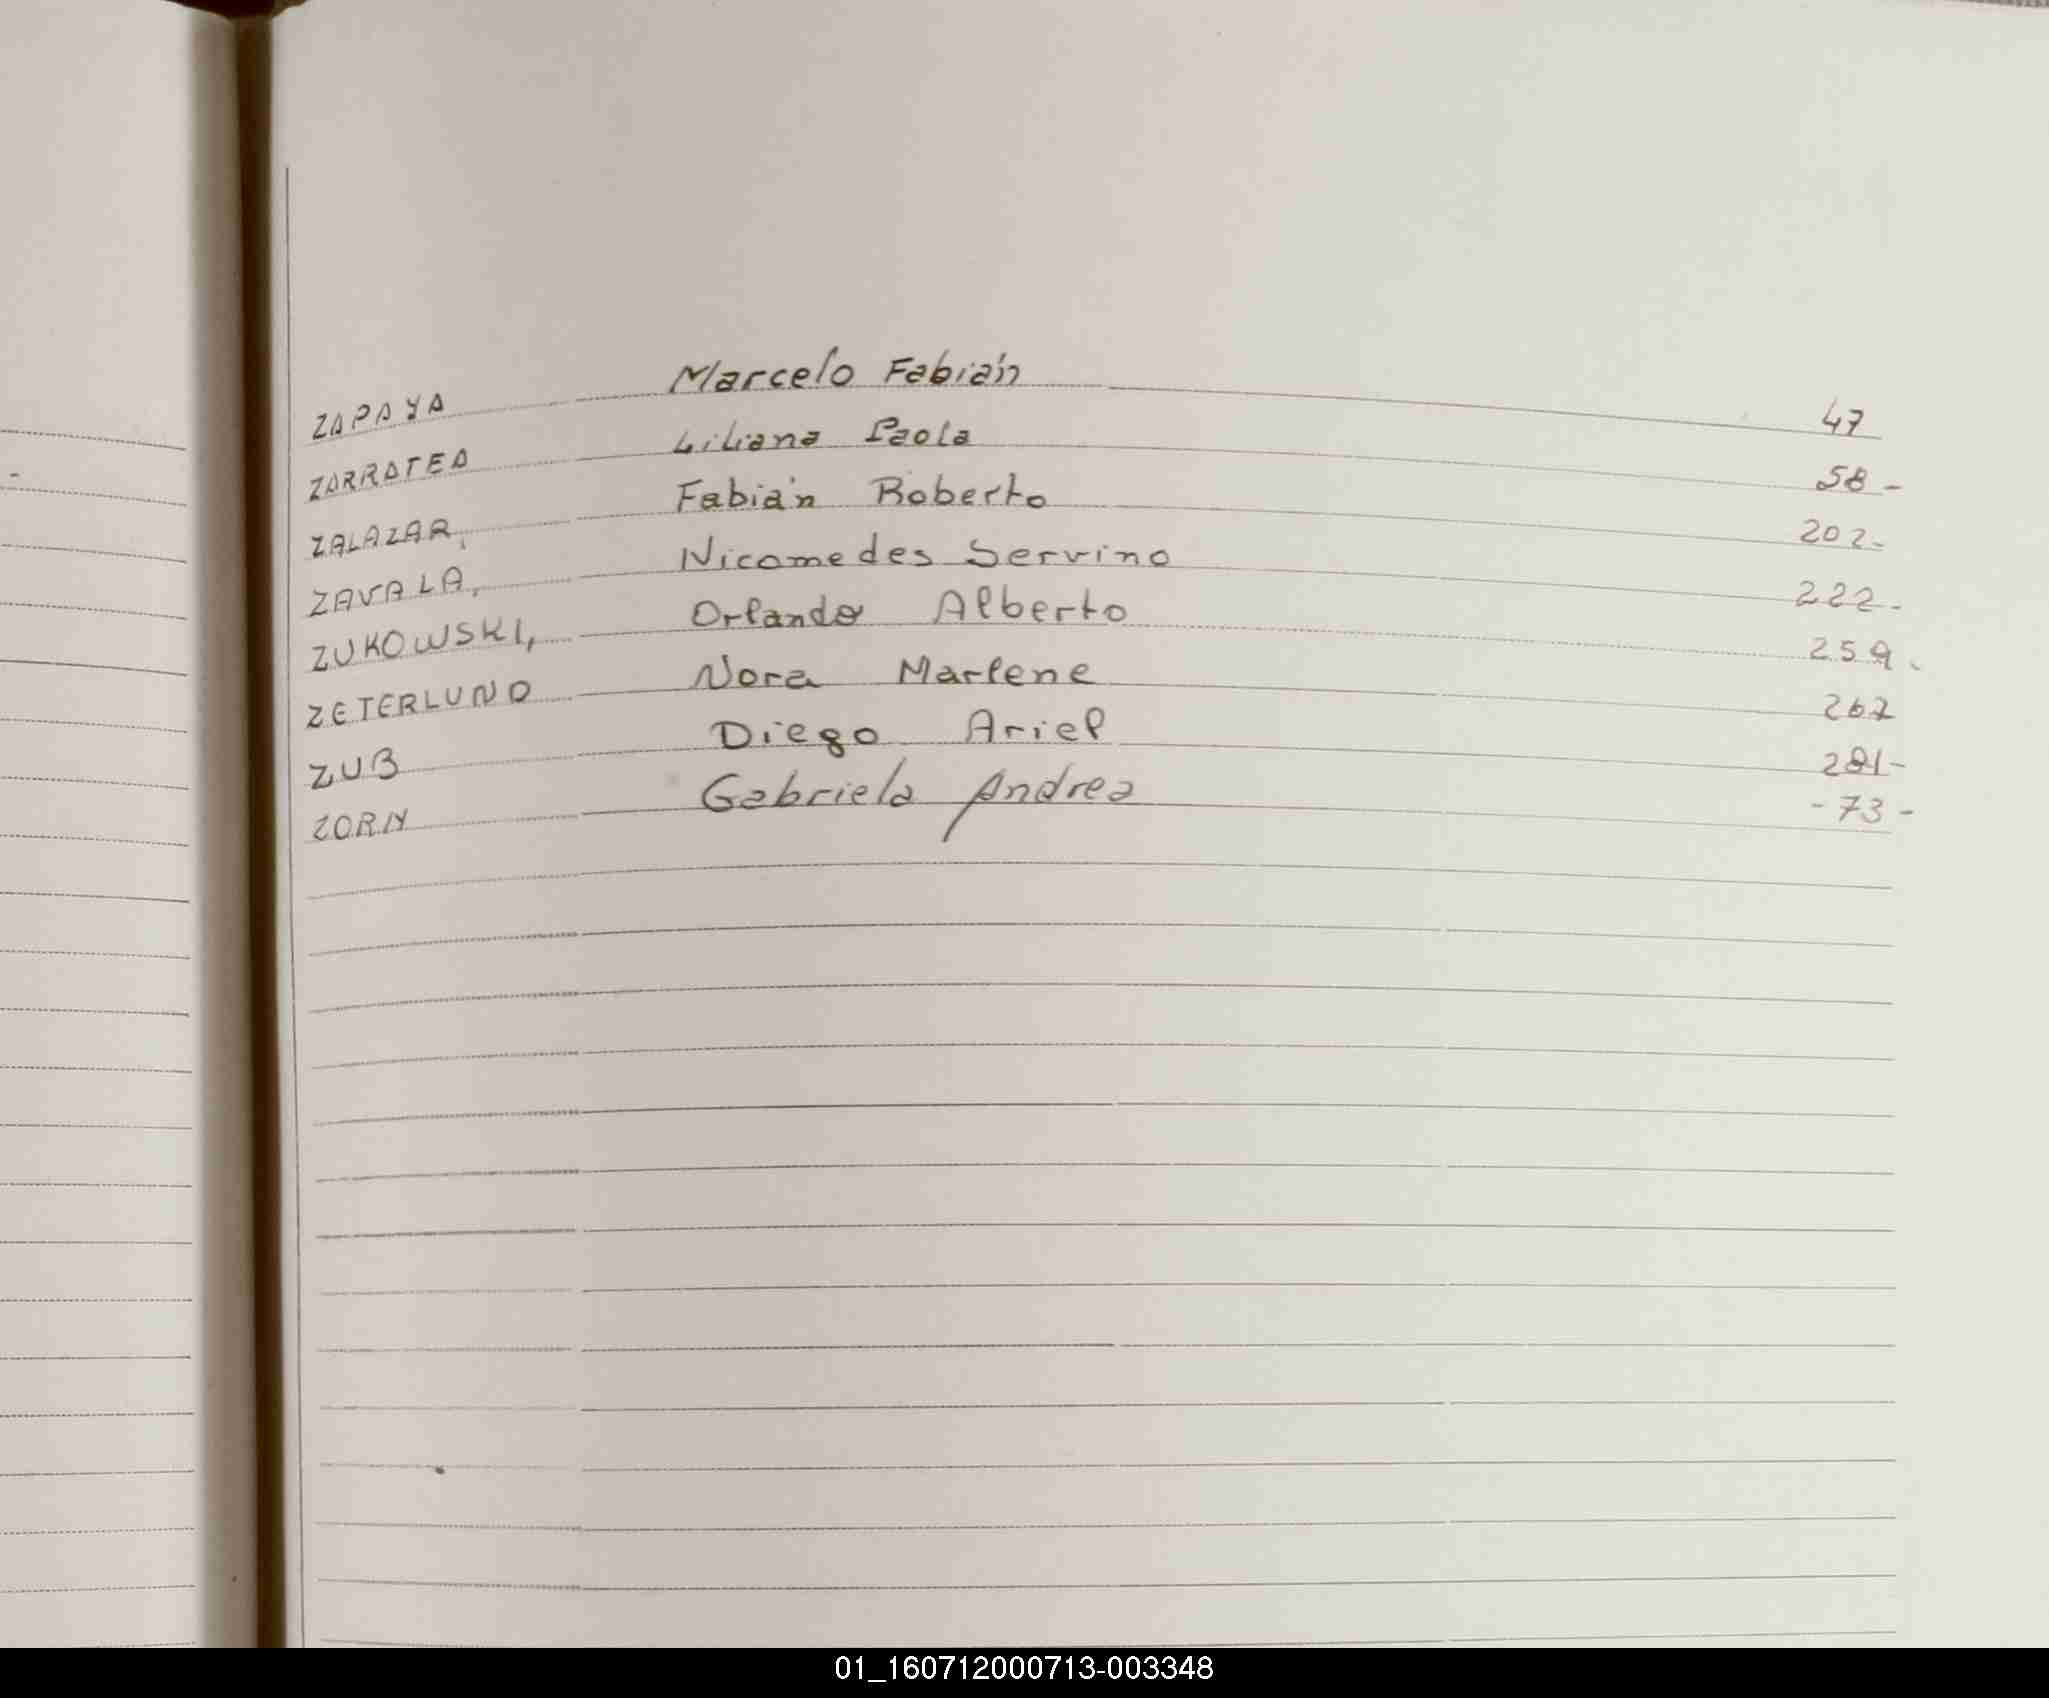 ZAPAYA Marcelo Fabián 47
ZARRATEA Liliana Paola 58 -
ZALAZAR, Fabián Roberto 202-
ZAVALA, Nicomedes Servino 222-
ZUKOWSKI, Orlando Alberto 259.
ZETERLUND Nora Marlene 267
ZUB Diego Ariel 281-
ZORN Gabriela Andrea -73-
01_160712000713-003348